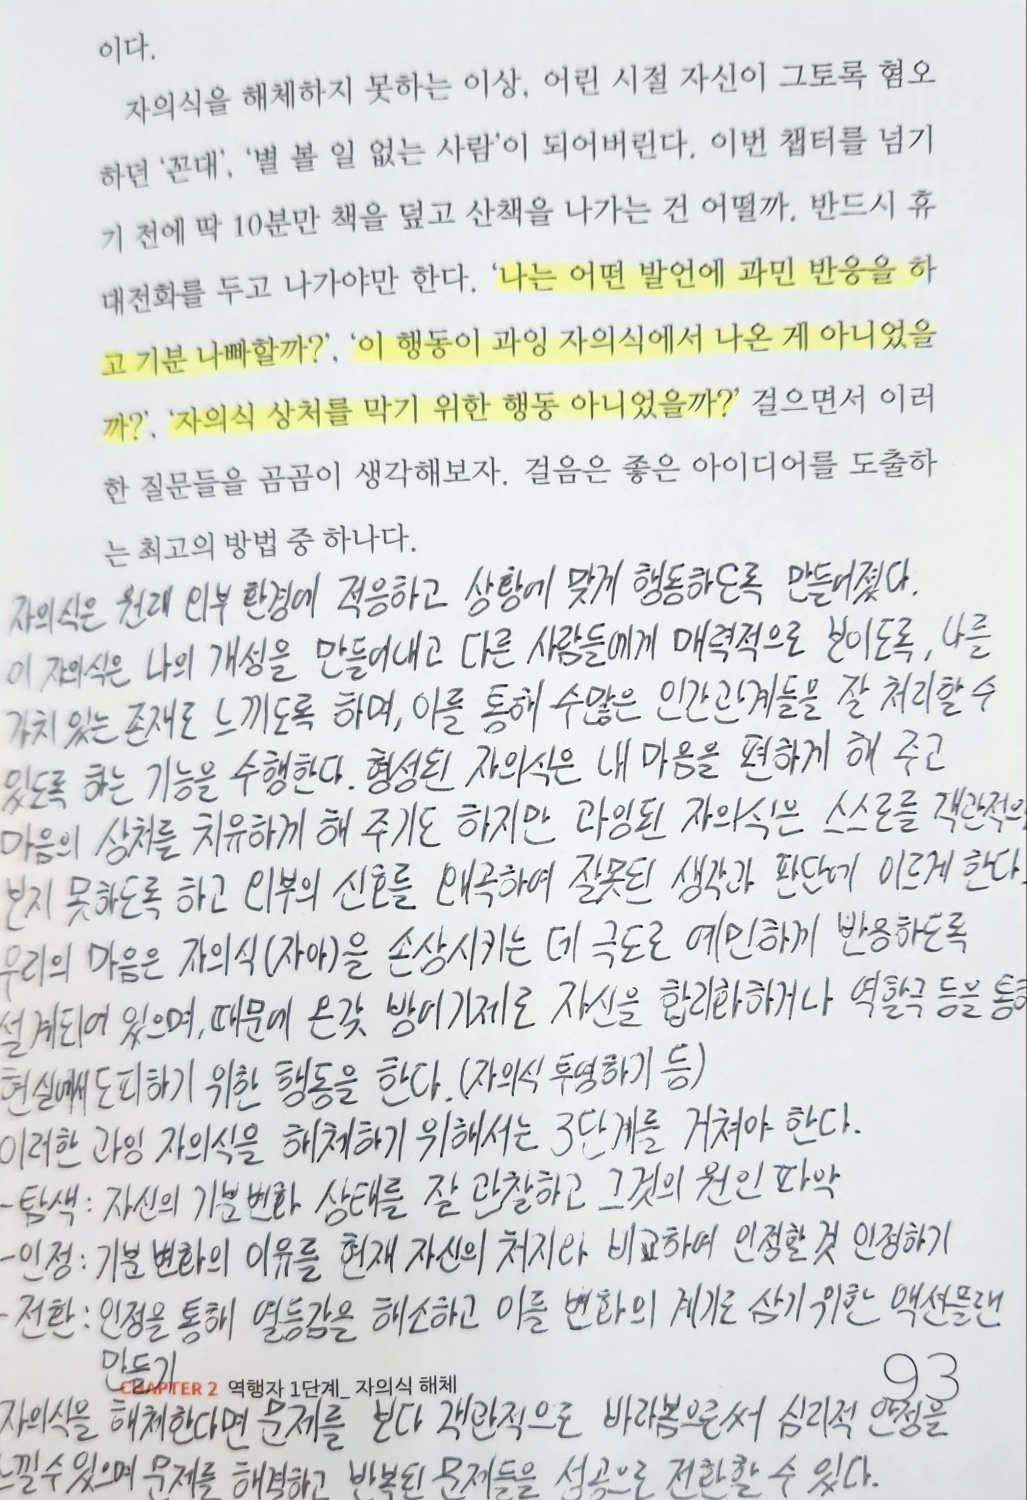 이다.
자의식을 해체하지 못하는 이상, 어린 시절 자신이 그토록 혐오
하던 ‘꼰대’, ‘별 볼 일 없는 사람’이 되어버린다. 이번 챕터를 넘기
기 전에 딱 10분만 책을 덮고 산책을 나가는 건 어떨까. 반드시 휴
대전화를 두고 나가야만 한다. ‘나는 어떤 발언에 과민 반응을 하
고 기분 나빠할까?’, ‘이 행동이 과잉 자의식에서 나온 게 아니었을
까?’, ‘자의식 상처를 막기 위한 행동 아니었을까?’ 걸으면서 이러
한 질문들을 곰곰이 생각해보자. 걸음은 좋은 아이디어를 도출하
는 최고의 방법 중 하나다.
자의식은 원래 외부 환경에 적응하고 상황에 맞게 행동하도록 만들어졌다.
이 자의식은 나의 개성을 만들어내고 다른 사람들에게 매력적으로 보이도록, 나를
가치 있는 존재로 느끼도록 하며, 이를 통해 수많은 인간관계들을 잘 처리할 수
있도록 하는 기능을 수행한다. 형성된 자의식은 내 마음을 편하게 해 주고
마음의 상처를 치유하게 해 주기도 하지만 과잉된 자의식은 스스로를 객관적으
보지 못하도록 하고 외부의 신호를 왜곡하여 잘못된 생각과 판단에 이르게 한다.
우리의 마음은 자의식(자아)을 손상시키는 데 극도로 예민하게 반응하도록
설계되어 있으며, 때문에 온갖 방어기제로 자신을 합리화하거나 역할극 등을 통해
현실에서 도피하기 위한 행동을 한다. (자의식 투영하기 등)
이러한 과잉 자의식을 해체하기 위해서는 3단계를 거쳐야 한다.
- 탐색 : 자신의 기분변화 상태를 잘 관찰하고 그것의 원인 파악
- 인정 : 기분 변화의 이유를 현재 자신의 처지와 비교하여 인정할 것 인정하기
- 전환 : 인정을 통해 열등감을 해소하고 이를 변화의 계기로 삼기 위한 액션플랜
만들기
CHAPTER 2 역행자 1단계_ 자의식 해체
93
자의식을 해체한다면 문제를 보다 객관적으로 바라봄으로써 심리적 안정을
느낄 수 있으며 문제를 해결하고 반복된 문제들을 성공으로 전환할 수 있다.